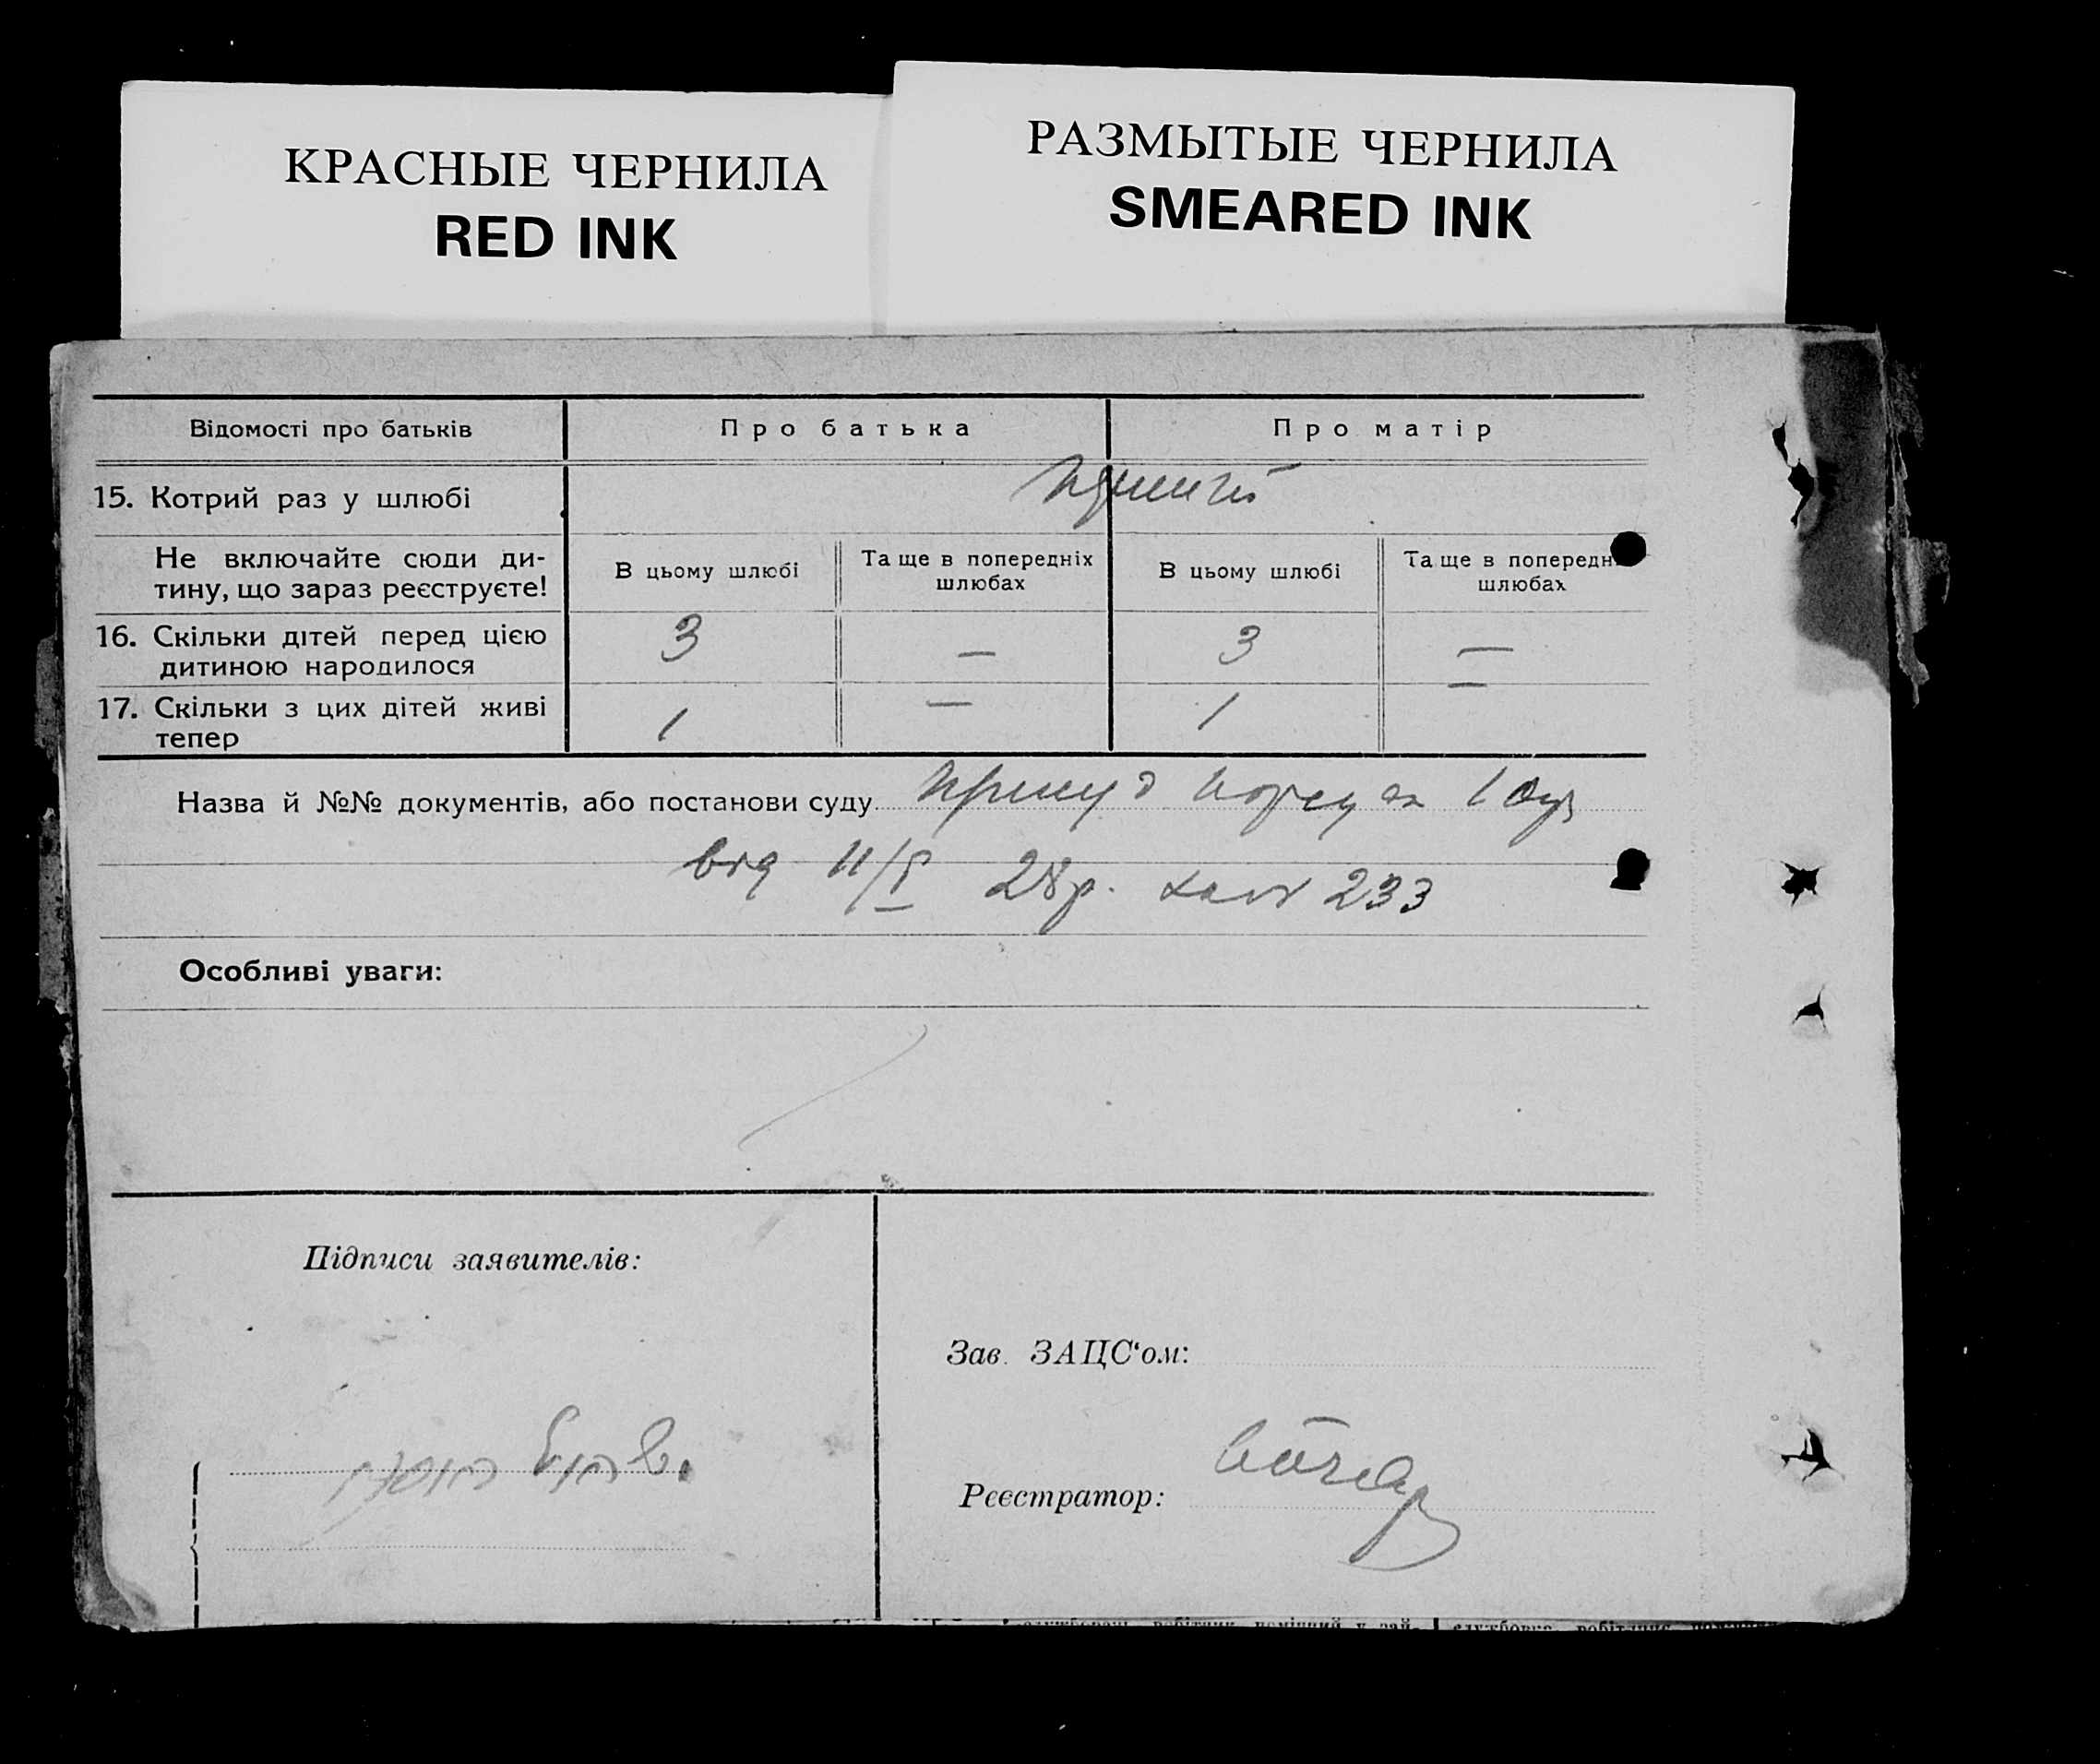 КРАСНЫЕ ЧЕРНИЛА
RED INK
РАЗМЫТЫЕ ЧЕРНИЛА
SMEARED INK
Відомості про батьків Про батька Про матір
15. Котрий раз у шлюбі
Не включайте сюди ди-
тину, що зараз реєструєте!
В цьому шлюбі Та ще в попередніх
шлюбах
В цьому шлюбі Та ще в попередн
шлюбах
16. Скільки дітей перед цією
дитиною народилося
3 — 3 —
17. Скільки з цих дітей живі
тепер
1 — 1 —
Назва й №№ документів, або постанови суду
від 11/V 28р. 233
Особливі уваги:
Підписи заявителів:
Зав. ЗАЦС‘ом:
Реєстратор: